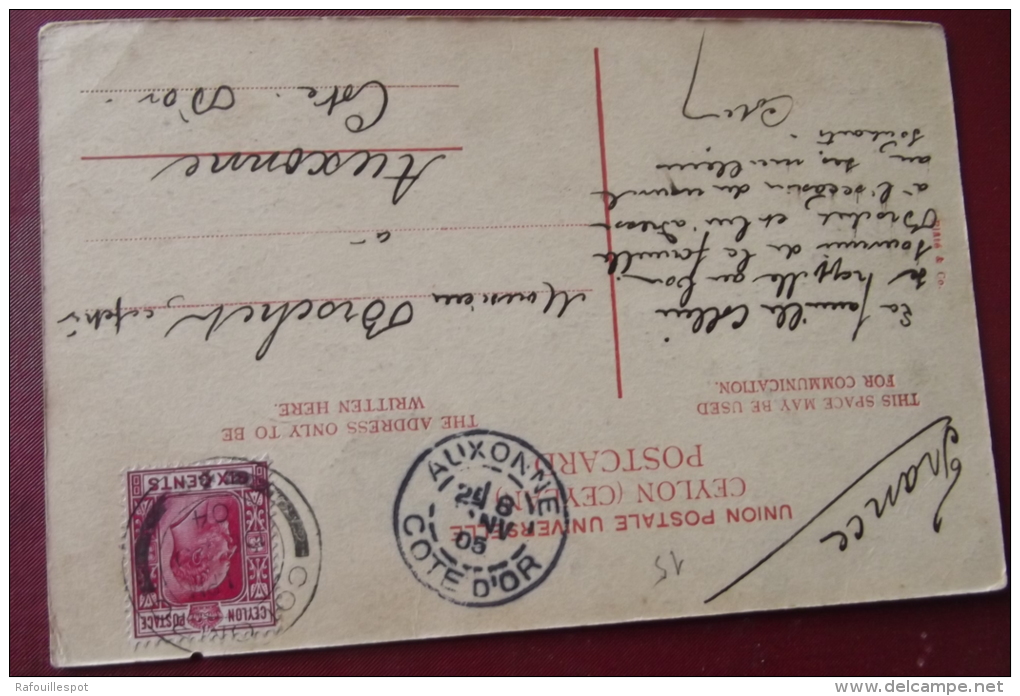 UNION POSTALE UNIVERSELLE
CEYLON (CEYLAN)
POSTCARD
THIS SPACE MAY BE USED
FOR COMMUNICATION.
THE ADDRESS ONLY TO BE
WRITTEN HERE.
France
15
La famille
se rappelle au bon
souvenir de la famille
Brochet, et lui adresse
à l'occasion du nouvel
an, ses meilleurs
souhaits.
Monsieur Brochet,
à
Auxonne
Côte. D'or.
& Co.
CEYLON POSTAGE
SIX CENTS
04
AUXONNE
8
NV
05
COTE D'OR
Rafouillespot
delcampe.net